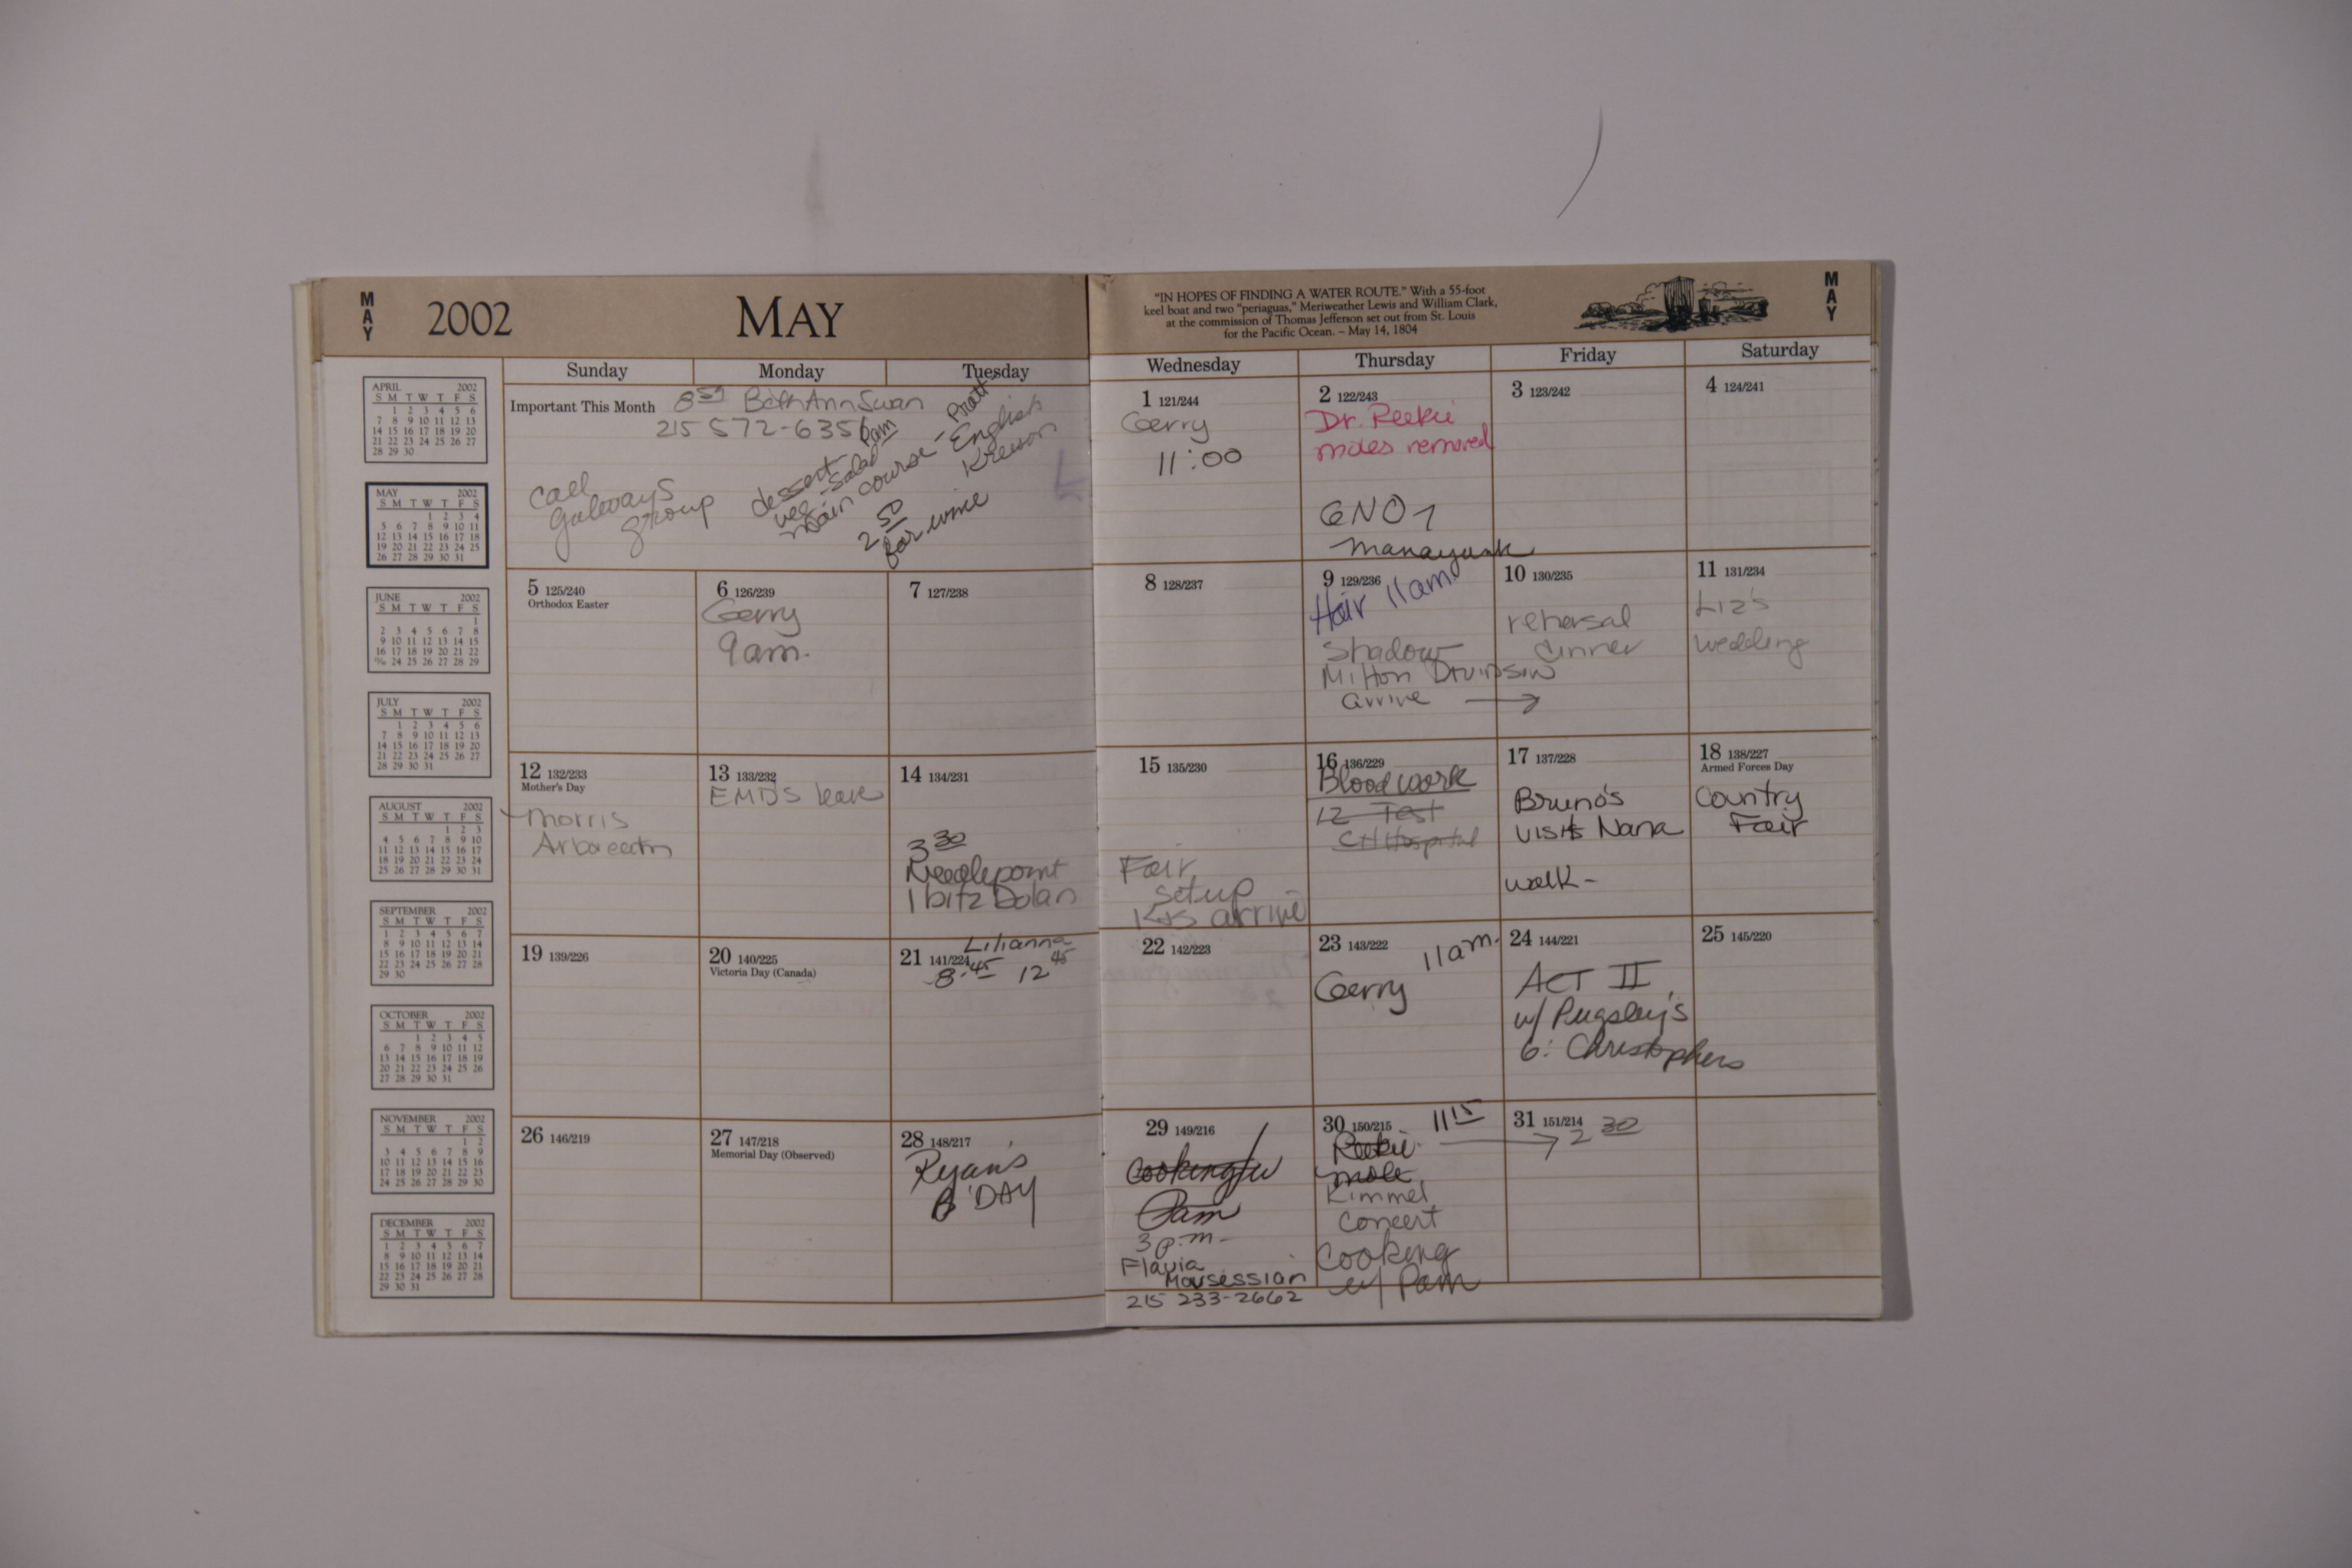 MAY
2002
MAY
"IN HOPES OF FINDING A WATER ROUTE." With a 55-foot
keel boat and two "periaguas," Meriweather Lewis and William Clark,
at the commission of Thomas Jefferson set out from St. Louis
for the Pacific Ocean. – May 14, 1804
MAY
Sunday Monday Tuesday Wednesday Thursday Friday Saturday
Important This Month
Beth Ann Swan
215 572-6356
call
group
dessert
veg - salad Pam
main course - English
Pratt
2 50
for wine
1 121/244
Gerry
11:00
2 122/243
Dr. Reekie
moles removed
GNO
manayunk
3 123/242
4 124/241
5 125/240
Orthodox Easter
6 126/239
Gerry
9am.
7 127/238
8 128/237
9 129/236
Hair 11am
Shadow
Milton
arrive →
10 130/235
rehersal
dinner
11 131/234
Liz's
wedding
12 132/233
Mother's Day
Morris
13 133/232
EMDS leave
14 134/231
3 30
Needlepoint
Dolan
15 135/230
Fair
setup
K+S arrive
16 136/229
Blood work
12 Test
CH Hospital
17 137/228
Bruno's
visit Nana
walk -
18 138/227
Armed Forces Day
Country
Fair
19 139/226
20 140/225
Victoria Day (Canada)
21 141/224
Lilianna
8:45 12 45
22 142/223
23 143/222
11am.
Gerry
24 144/221
ACT II
w/ Pugsley's
6: Christophers
25 145/220
26 146/219
27 147/218
Memorial Day (Observed)
28 148/217
Ryan's
B'DAY
29 149/216
Cooking w
Pam
3 p.m.
Flavia
Movsessian
215 233-2662
30 150/215
11 15
Reekie
mole
Kimmel
Concert
Cooking
w/ Pam
31 151/214
→ 2 30
APRIL 2002
S M T W T F S
1 2 3 4 5 6
7 8 9 10 11 12 13
14 15 16 17 18 19 20
21 22 23 24 25 26 27
28 29 30
MAY 2002
S M T W T F S
1 2 3 4
5 6 7 8 9 10 11
12 13 14 15 16 17 18
19 20 21 22 23 24 25
26 27 28 29 30 31
JUNE 2002
S M T W T F S
1
2 3 4 5 6 7 8
9 10 11 12 13 14 15
16 17 18 19 20 21 22
23/30 24 25 26 27 28 29
JULY 2002
S M T W T F S
1 2 3 4 5 6
7 8 9 10 11 12 13
14 15 16 17 18 19 20
21 22 23 24 25 26 27
28 29 30 31
AUGUST 2002
S M T W T F S
1 2 3
4 5 6 7 8 9 10
11 12 13 14 15 16 17
18 19 20 21 22 23 24
25 26 27 28 29 30 31
SEPTEMBER 2002
S M T W T F S
1 2 3 4 5 6 7
8 9 10 11 12 13 14
15 16 17 18 19 20 21
22 23 24 25 26 27 28
29 30
OCTOBER 2002
S M T W T F S
1 2 3 4 5
6 7 8 9 10 11 12
13 14 15 16 17 18 19
20 21 22 23 24 25 26
27 28 29 30 31
NOVEMBER 2002
S M T W T F S
1 2
3 4 5 6 7 8 9
10 11 12 13 14 15 16
17 18 19 20 21 22 23
24 25 26 27 28 29 30
DECEMBER 2002
S M T W T F S
1 2 3 4 5 6 7
8 9 10 11 12 13 14
15 16 17 18 19 20 21
22 23 24 25 26 27 28
29 30 31